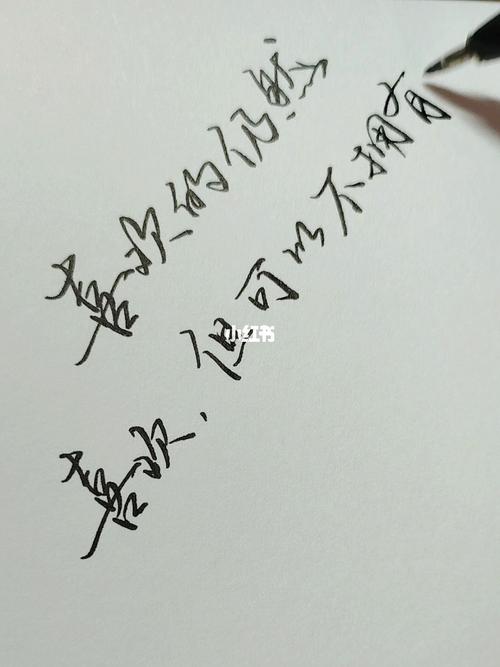 喜欢的仍然
喜欢，但可以不拥有
小红书